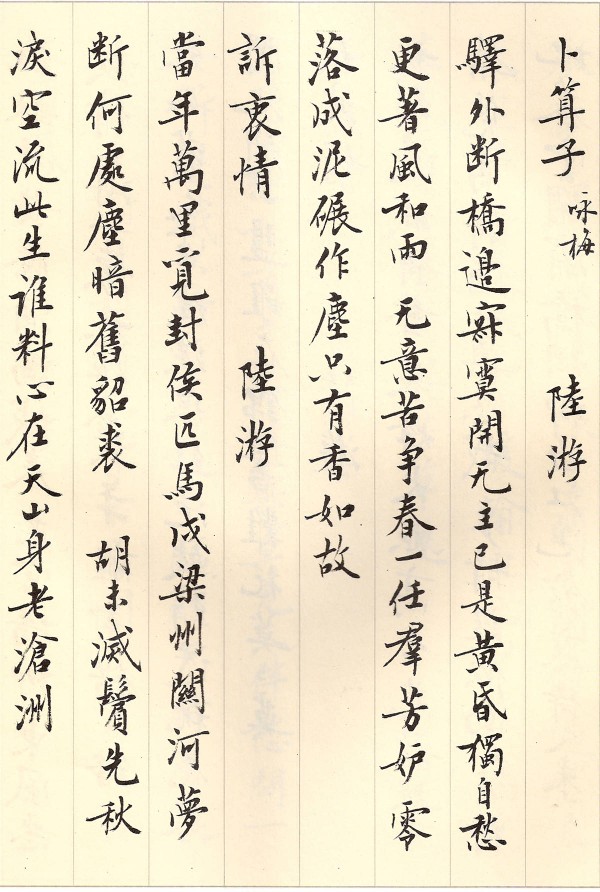 卜算子 咏梅 陸游
驛外断橋邉寂寞開无主已是黄昏獨自愁
更著風和雨 无意苦争春一任羣芳妒零
落成泥碾作塵只有香如故
訴衷情 陸游
當年萬里覓封侯匹馬戍梁州關河夢
断何處塵暗舊貂裘 胡未滅鬢先秋
淚空流此生誰料心在天山身老滄洲